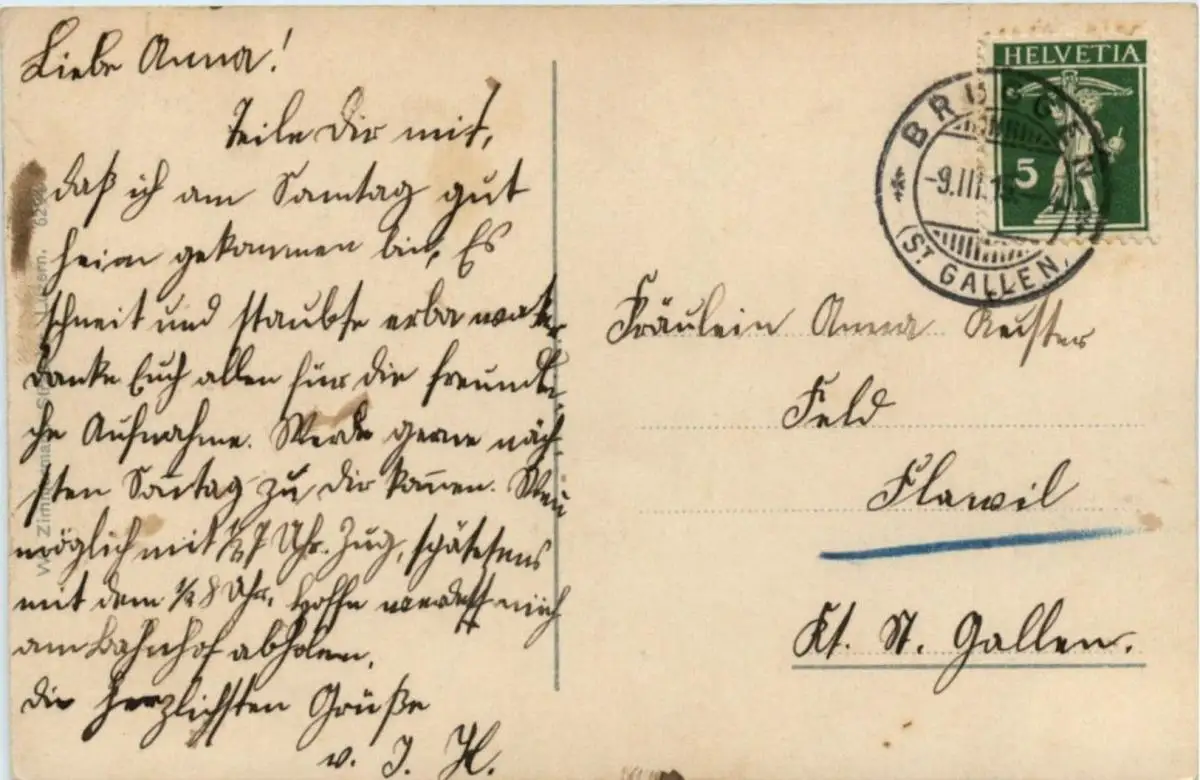 Liebe Anna!
Teile Dir mit,
daß ich am Samtag gut
heim gekommen bin, Es
schneit und staubt
danke Euch allen für die freundli
che Aufnahme. Werde gerne näch
sten Sontag zu Dir kommen. Wen
möglich mit 1/2 7 Uhr. Zug, spätestens
mit dem 1/2 8 Uhr. Hoffe werdest mich
am Bahnhof abholen.
die herzlichsten Grüße
v. J. H.
HELVETIA
5
BRUGGEN
-9.III.1
(ST GALLEN)
Fräulein Anna
Feld
Flawil
Kt. St. Gallen.